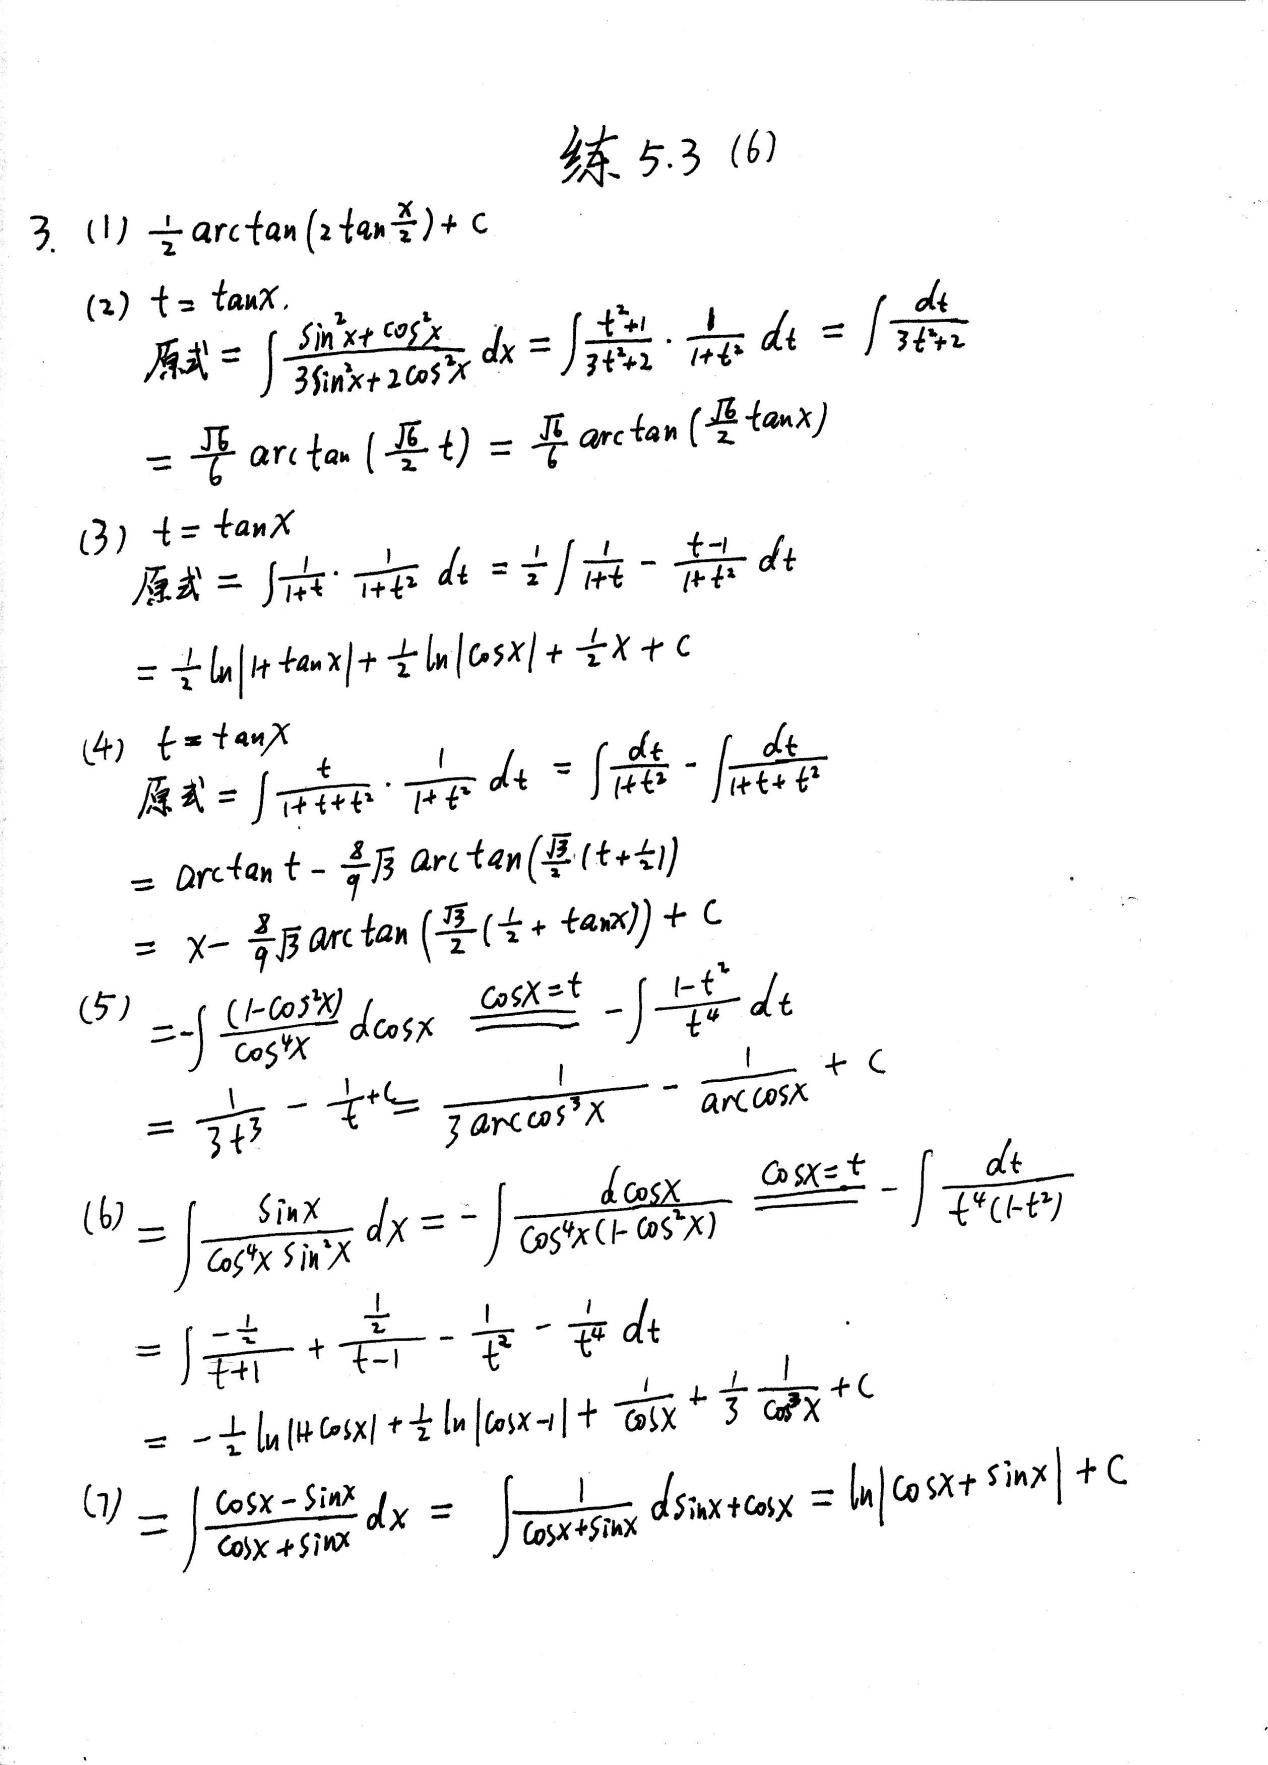 练 5.3 (6)
3. (1) \frac{1}{2} arctan(2tan\frac{x}{2}) + C
(2) t = tanx.
原式 = ∫\frac{sin²x + cos²x}{3sin²x + 2cos²x} dx = ∫\frac{t²+1}{3t²+2} · \frac{1}{1+t²} dt = ∫\frac{dt}{3t²+2}
= \frac{√6}{6} arctan(\frac{√6}{2}t) = \frac{√6}{6} arctan(\frac{√6}{2}tanx)
(3) t = tanx
原式 = ∫\frac{1}{1+t} · \frac{1}{1+t²} dt = \frac{1}{2}∫\frac{1}{1+t} - \frac{t-1}{1+t²} dt
= \frac{1}{2}ln|1+tanx| + \frac{1}{2}ln|cosx| + \frac{1}{2}x + C
(4) t = tanx
原式 = ∫\frac{t}{1+t+t²} · \frac{1}{1+t²} dt = ∫\frac{dt}{1+t²} - ∫\frac{dt}{1+t+t²}
= arctan t - \frac{8}{9}√3 arctan(\frac{√3}{2}(t+\frac{1}{2}))
= x - \frac{8}{9}√3 arctan(\frac{√3}{2}(\frac{1}{2} + tanx)) + C
(5) = -∫\frac{(1-cos²x)}{cos⁴x} dcosx \xlongequal{cosx=t} -∫\frac{1-t²}{t⁴} dt
= \frac{1}{3t³} - \frac{1}{t} + C = \frac{1}{3arccos³x} - \frac{1}{arccosx} + C
(6) = ∫\frac{sinx}{cos⁴x sin²x} dx = -∫\frac{dcosx}{cos⁴x(1-cos²x)} \xlongequal{cosx=t} -∫\frac{dt}{t⁴(1-t²)}
= ∫\frac{-\frac{1}{2}}{t+1} + \frac{\frac{1}{2}}{t-1} - \frac{1}{t²} - \frac{1}{t⁴} dt
= -\frac{1}{2}ln|1+cosx| + \frac{1}{2}ln|cosx-1| + \frac{1}{cosx} + \frac{1}{3}\frac{1}{cos³x} + C
(7) = ∫\frac{cosx-sinx}{cosx+sinx} dx = ∫\frac{1}{cosx+sinx} dsinx+cosx = ln|cosx+sinx| + C